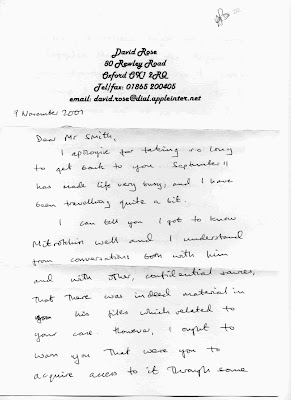 David Rose
80 Rowley Road
Oxford OX1 2RQ
Tel/fax: 01865 200405
email: david.rose@dial.appleinter.net
9 November 2001
Dear Mr Smith,
I apologise for taking so long
to get back to you. September 11
has made life very busy, and I have
been travelling quite a bit.
I can tell you I got to know
Mitrokhin well and I understand
from conversations both with him
and with other, confidential sources,
that there was indeed material in
his files which related to
your case. However, I ought to
warn you that were you to
acquire access to it through some